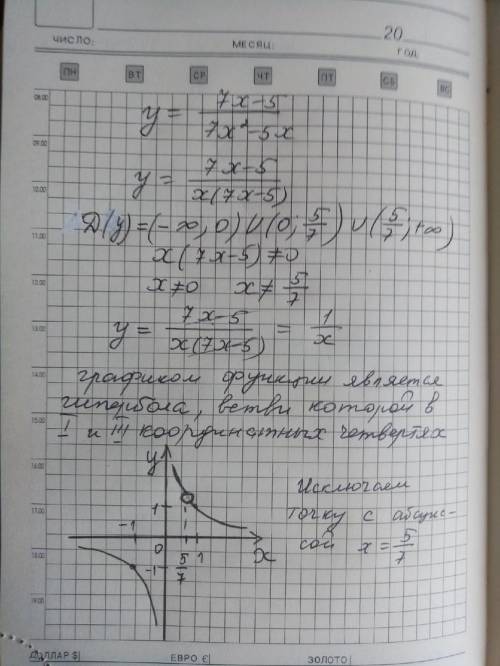 20
ЧИСЛО: МЕСЯЦ: ГОД
ПН ВТ СР ЧТ ПТ СБ ВС
08.00
y = (7x-5)/(7x²-5x)
09.00
y = (7x-5)/(x(7x-5))
10.00
D(y)=(-∞,0)∪(0;5/7)∪(5/7;+∞)
11.00
x(7x-5)≠0
12.00
x≠0 x≠5/7
13.00
y = (7x-5)/(x(7x-5)) = 1/x
14.00
графиком функции является
гипербола, ветви которой в
15.00
I и III координатных четвертях
16.00
y
Исключаем
точку с абсцис-
сой x=5/7
17.00
1
-1 0 5/7 1 x
18.00
-1
19.00
ДОЛЛАР $| ЕВРО €| ЗОЛОТО|